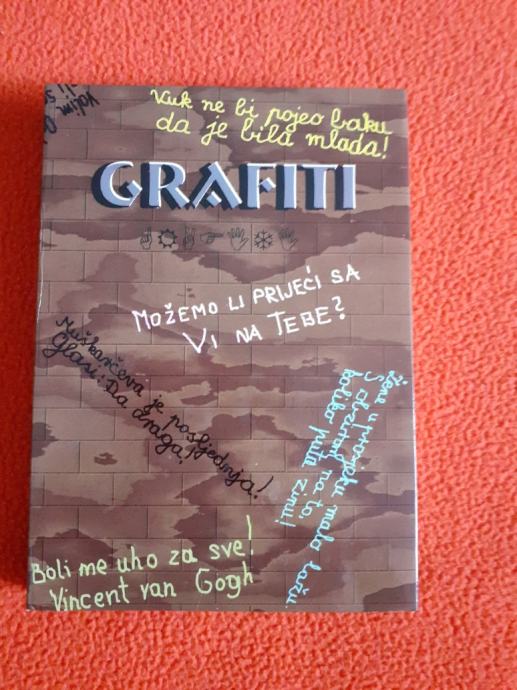 Volim
Vuk ne bi pojeo baku
da je bila mlada!
GRAFITI
MOŽEMO LI PRIJEĆI SA
VI NA TEBE?
Muškarčeva je posljednja!
Glasi: Da draga!
Žene u prosjeku malo lažu
S obzirom na to
koliko puta zinu!
Boli me uho za sve!
Vincent van Gogh